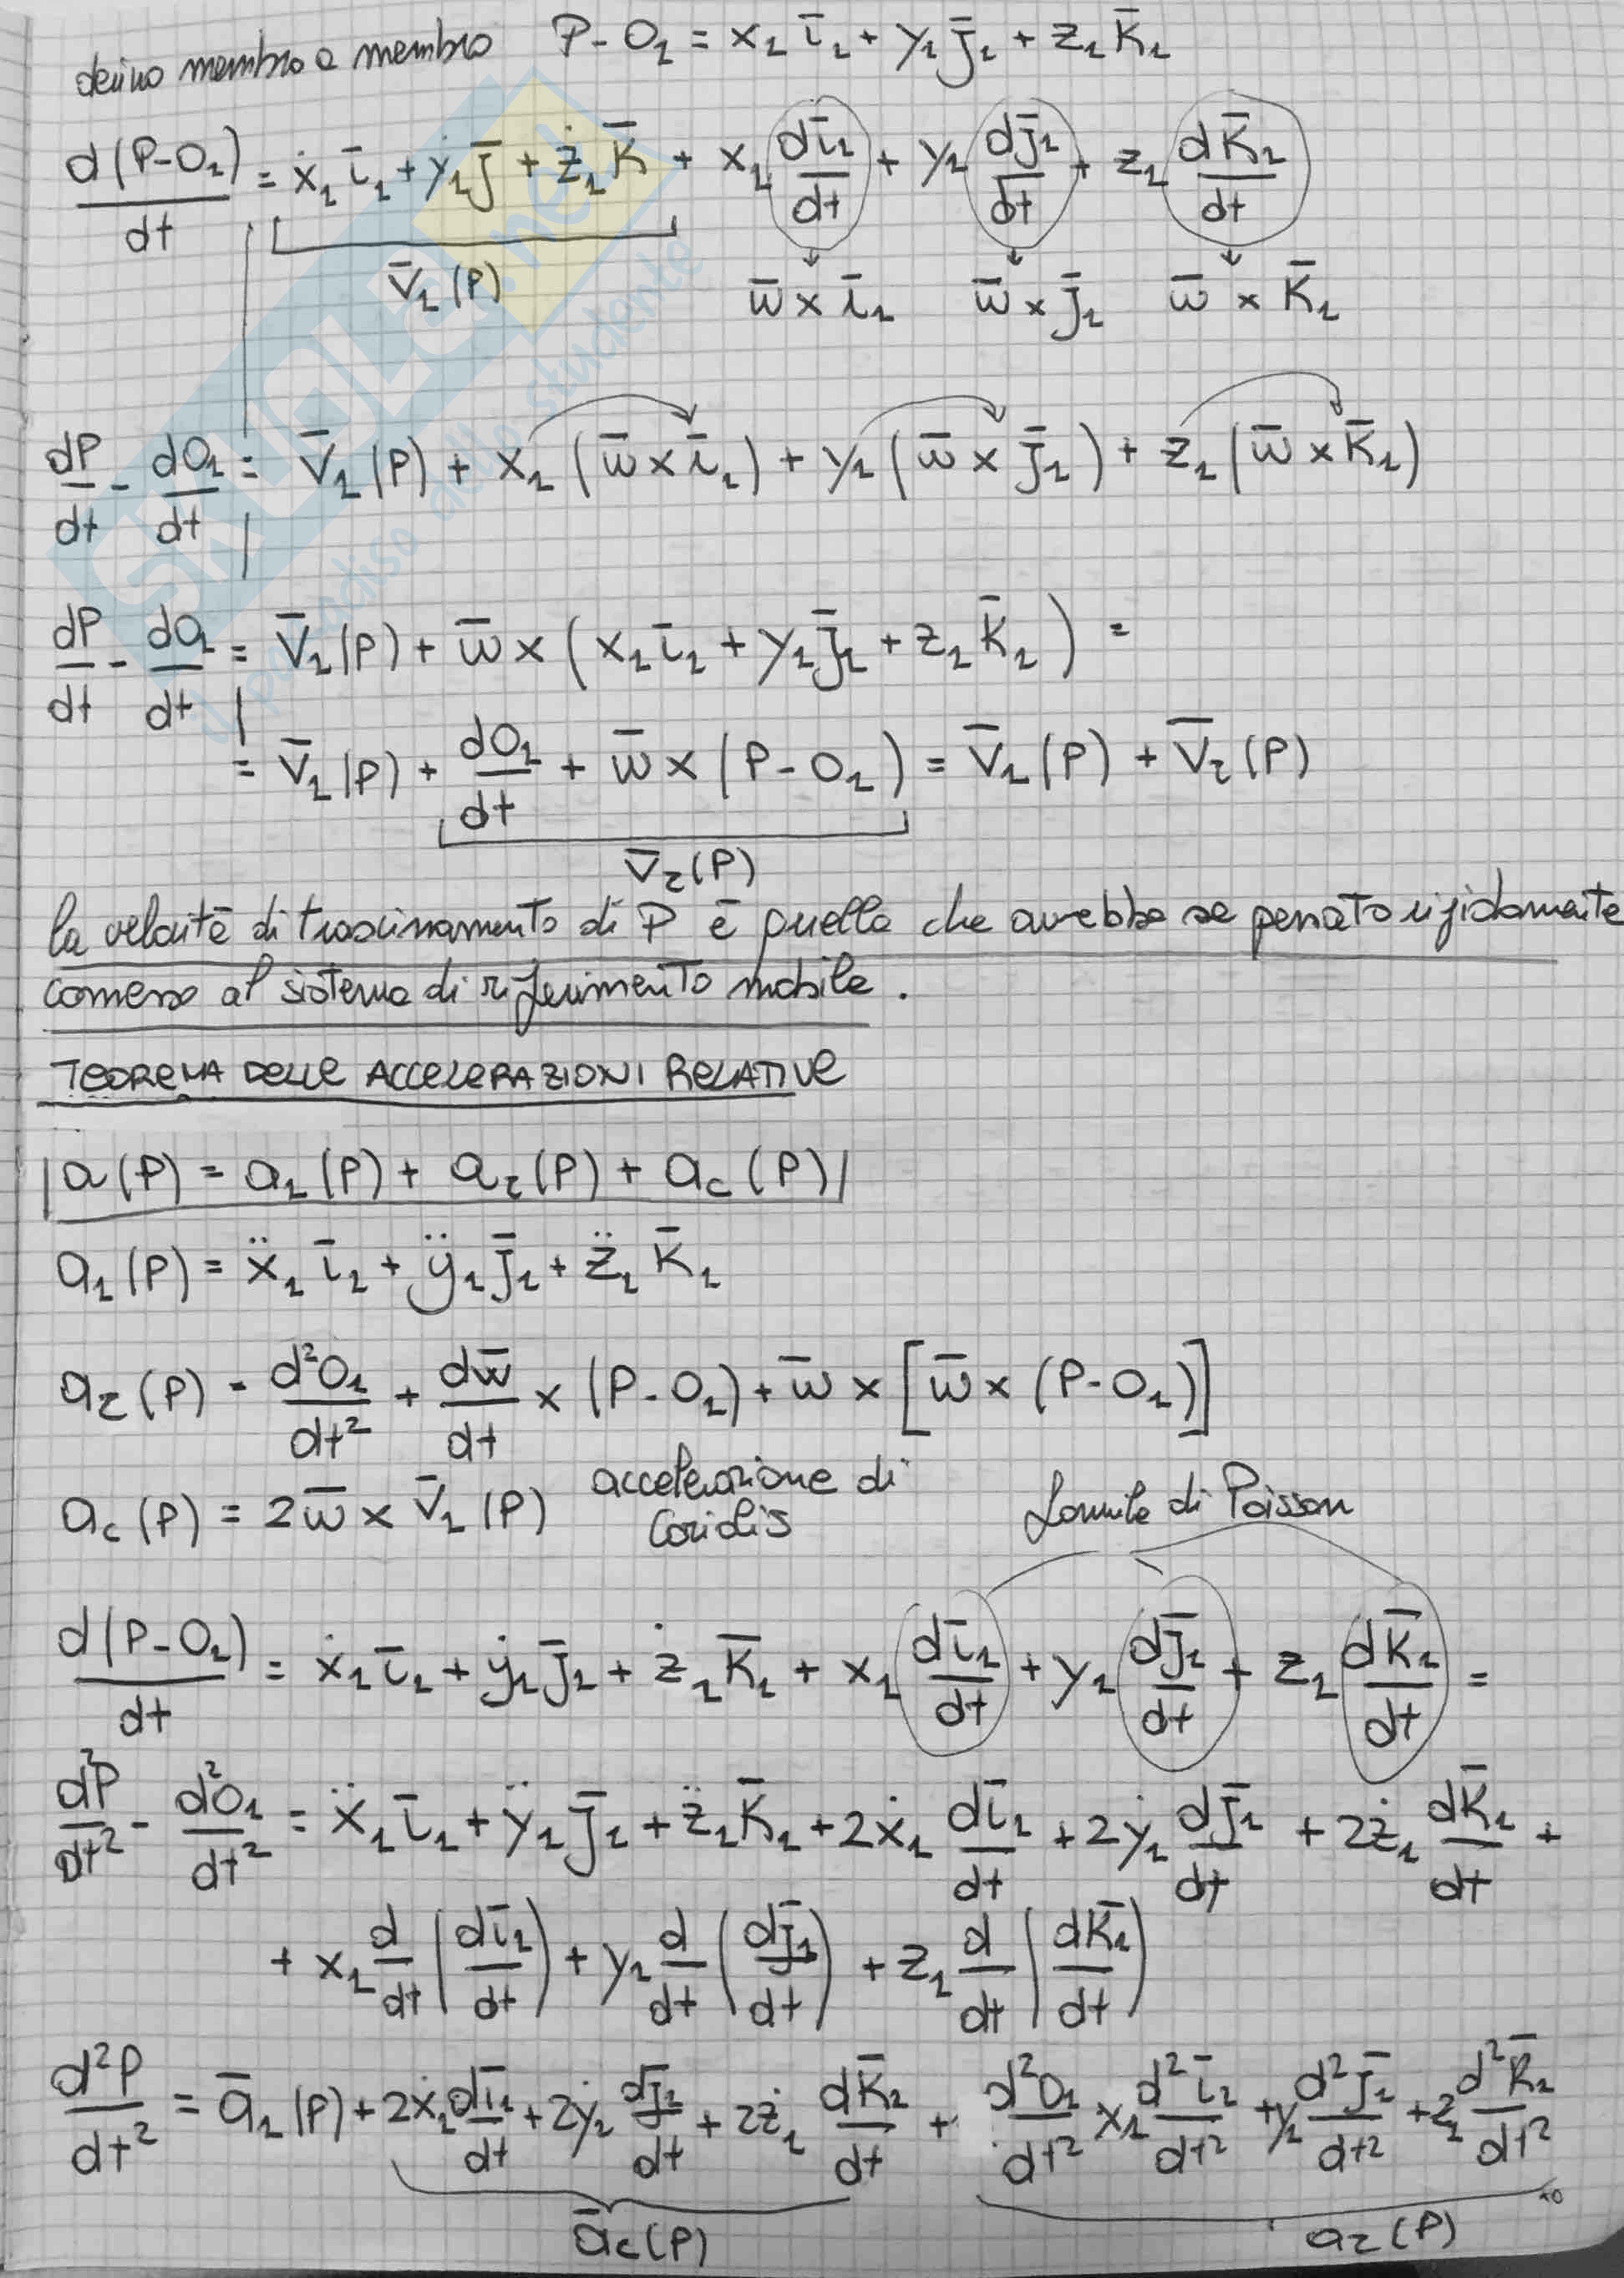 derivo membro a membro P-O₁ = x₁ ī₁ + y₁ j̄₁ + z₁ k̄₁
d(P-O₁)/dt = ẋ₁ ī₁ + ẏ₁ j̄ + ż₁ k̄ + x₁ dī₁/dt + y₁ dj̄₁/dt + z₁ dk̄₁/dt
v̄₁(P) ω̄ × ī₁ ω̄ × j̄₁ ω̄ × k̄₁
dP/dt - dO₁/dt = v̄₁(P) + x₁(ω̄ × ī₁) + y₁(ω̄ × j̄₁) + z₁(ω̄ × k̄₁)
dP/dt - dO₁/dt = v̄₁(P) + ω̄ × (x₁ī₁ + y₁j̄₁ + z₁k̄₁) =
= v̄₁(P) + dO₁/dt + ω̄ × (P-O₁) = v̄₁(P) + v̄τ(P)
v̄τ(P)
la velocità di trascinamento di P è quella che avrebbe se pensato rigidamente
connesso al sistema di riferimento mobile.
TEOREMA DELLE ACCELERAZIONI RELATIVE
|a(P) = a₁(P) + aτ(P) + a_c(P)|
a₁(P) = ẍ₁ ī₁ + ÿ₁ j̄₁ + z̈₁ k̄₁
aτ(P) = d²O₁/dt² + dω̄/dt × (P-O₁) + ω̄ × [ω̄ × (P-O₁)]
a_c(P) = 2ω̄ × v̄₁(P) accelerazione di Coriolis
formule di Poisson
d(P-O₁)/dt = ẋ₁ī₁ + ẏ₁j̄₁ + ż₁k̄₁ + x₁ dī₁/dt + y₁ dj̄₁/dt + z₁ dk̄₁/dt =
d²P/dt² - d²O₁/dt² = ẍ₁ī₁ + ÿ₁j̄₁ + z̈₁k̄₁ + 2ẋ₁ dī₁/dt + 2ẏ₁ dj̄₁/dt + 2ż₁ dk̄₁/dt +
+ x₁ d/dt (dī₁/dt) + y₁ d/dt (dj̄₁/dt) + z₁ d/dt (dk̄₁/dt)
d²P/dt² = ā₁(P) + 2ẋ₁ dī₁/dt + 2ẏ₁ dj̄₁/dt + 2ż₁ dk̄₁/dt + d²O₁/dt² x₁ d²ī₁/dt² + y₁ d²j̄₁/dt² + z₁ d²k̄₁/dt²
ā_c(P) aτ(P)
SKUOLA.net
il paradiso dello studente